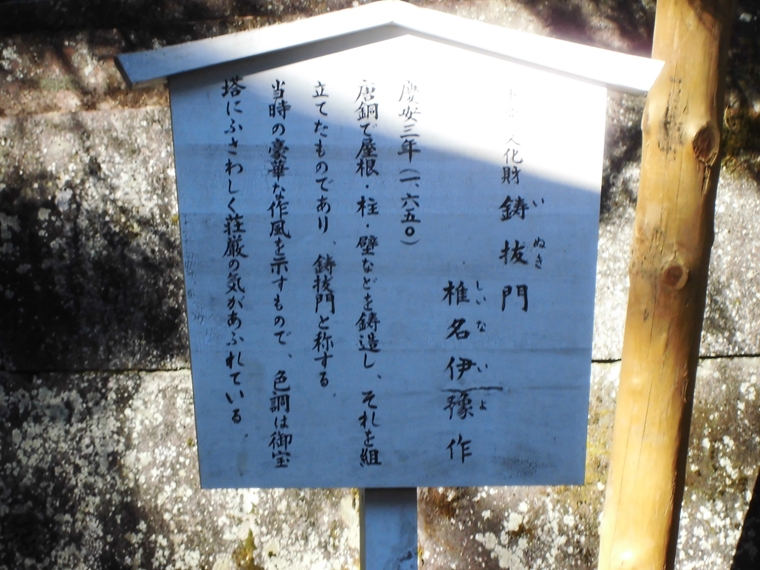 文化財 鋳抜門
いぬき
椎名伊豫作
しいないよ
慶安三年(一、六五〇)
唐銅で屋根・柱・壁などを鋳造し、それを組
立てたものであり、鋳抜門と称する。
当時の豪華な作風を示すもので、色調は御宝
塔にふさわしく荘厳の気があふれている。